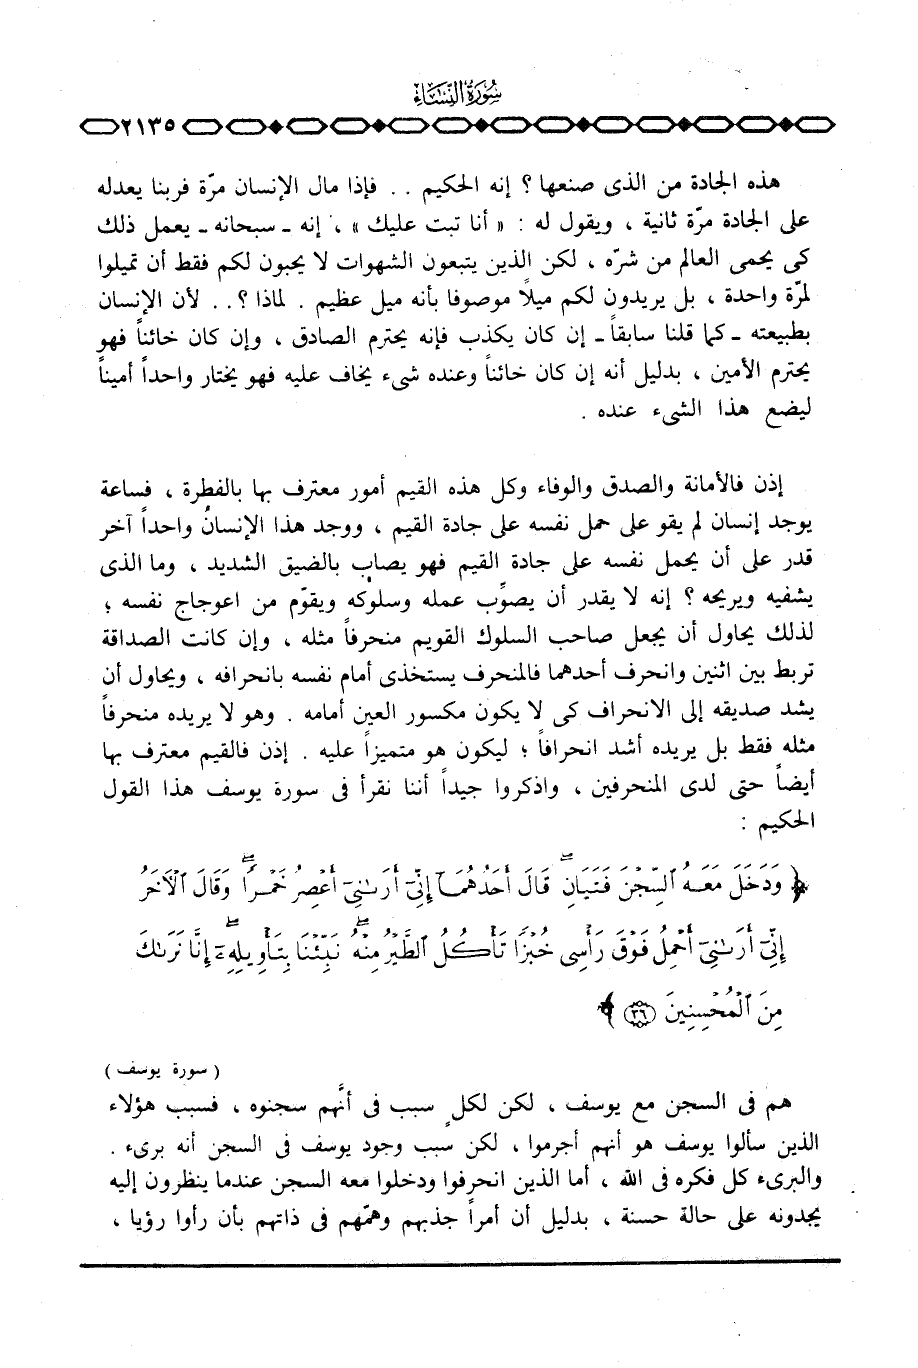 سُورَةُ النِّسَاءِ
٢١٣٥
هذه الجادة من الذى صنعها ؟ إنه الحكيم . . فإذا مال الإنسان مرّة فربنا يعدله
على الجادة مرّة ثانية ، ويقول له : « أنا تبت عليك » ، إنه ـ سبحانه ـ يعمل ذلك
كى يحمى العالم من شرّه ، لكن الذين يتبعون الشهوات لا يحبون لكم فقط أن تميلوا
لمرّة واحدة ، بل يريدون لكم ميلاً موصوفا بأنه ميل عظيم . لماذا ؟ . . لأن الإنسان
بطبيعته ـ كما قلنا سابقاً ـ إن كان يكذب فإنه يحترم الصادق ، وإن كان خائناً فهو
يحترم الأمين ، بدليل أنه إن كان خائناً وعنده شىء يخاف عليه فهو يختار واحداً أميناً
ليضع هذا الشىء عنده .
إذن فالأمانة والصدق والوفاء وكل هذه القيم أمور معترف بها بالفطرة ، فساعة
يوجد إنسان لم يقو على حمل نفسه على جادة القيم ، ووجد هذا الإنسانُ واحداً آخر
قدر على أن يحمل نفسه على جادة القيم فهو يصاب بالضيق الشديد ، وما الذى
يشفيه ويريحه ؟ إنه لا يقدر أن يصوِّب عمله وسلوكه ويقوّم من اعوجاج نفسه ؛
لذلك يحاول أن يجعل صاحب السلوك القويم منحرفاً مثله ، وإن كانت الصداقة
تربط بين اثنين وانحرف أحدهما فالمنحرف يستخذى أمام نفسه بانحرافه ، ويحاول أن
يشد صديقه إلى الانحراف كى لا يكون مكسور العين أمامه . وهو لا يريده منحرفاً
مثله فقط بل يريده أشد انحرافاً ؛ ليكون هو متميزاً عليه . إذن فالقيم معترف بها
أيضاً حتى لدى المنحرفين ، واذكروا جيداً أننا نقرأ فى سورة يوسف هذا القول
الحكيم :
﴿ وَدَخَلَ مَعَهُ ٱلسِّجْنَ فَتَيَانِ ۖ قَالَ أَحَدُهُمَآ إِنِّىٓ أَرَىٰنِىٓ أَعْصِرُ خَمْرًا ۖ وَقَالَ ٱلْآخَرُ
إِنِّىٓ أَرَىٰنِىٓ أَحْمِلُ فَوْقَ رَأْسِى خُبْزًا تَأْكُلُ ٱلطَّيْرُ مِنْهُ ۖ نَبِّئْنَا بِتَأْوِيلِهِۦٓ ۖ إِنَّا نَرَىٰكَ
مِنَ ٱلْمُحْسِنِينَ ٣٦ ﴾
( سورة يوسف )
هم فى السجن مع يوسف ، لكن لكلٍ سبب فى أنَّهم سجنوه ، فسبب هؤلاء
الذين سألوا يوسف هو أنهم أجرموا ، لكن سبب وجود يوسف فى السجن أنه برىء .
والبرىء كل فكره فى الله ، أما الذين انحرفوا ودخلوا معه السجن عندما ينظرون إليه
يجدونه على حالة حسنة ، بدليل أن أمراً جذبهم وهمّهم فى ذاتهم بأن رأوا رؤيا ،